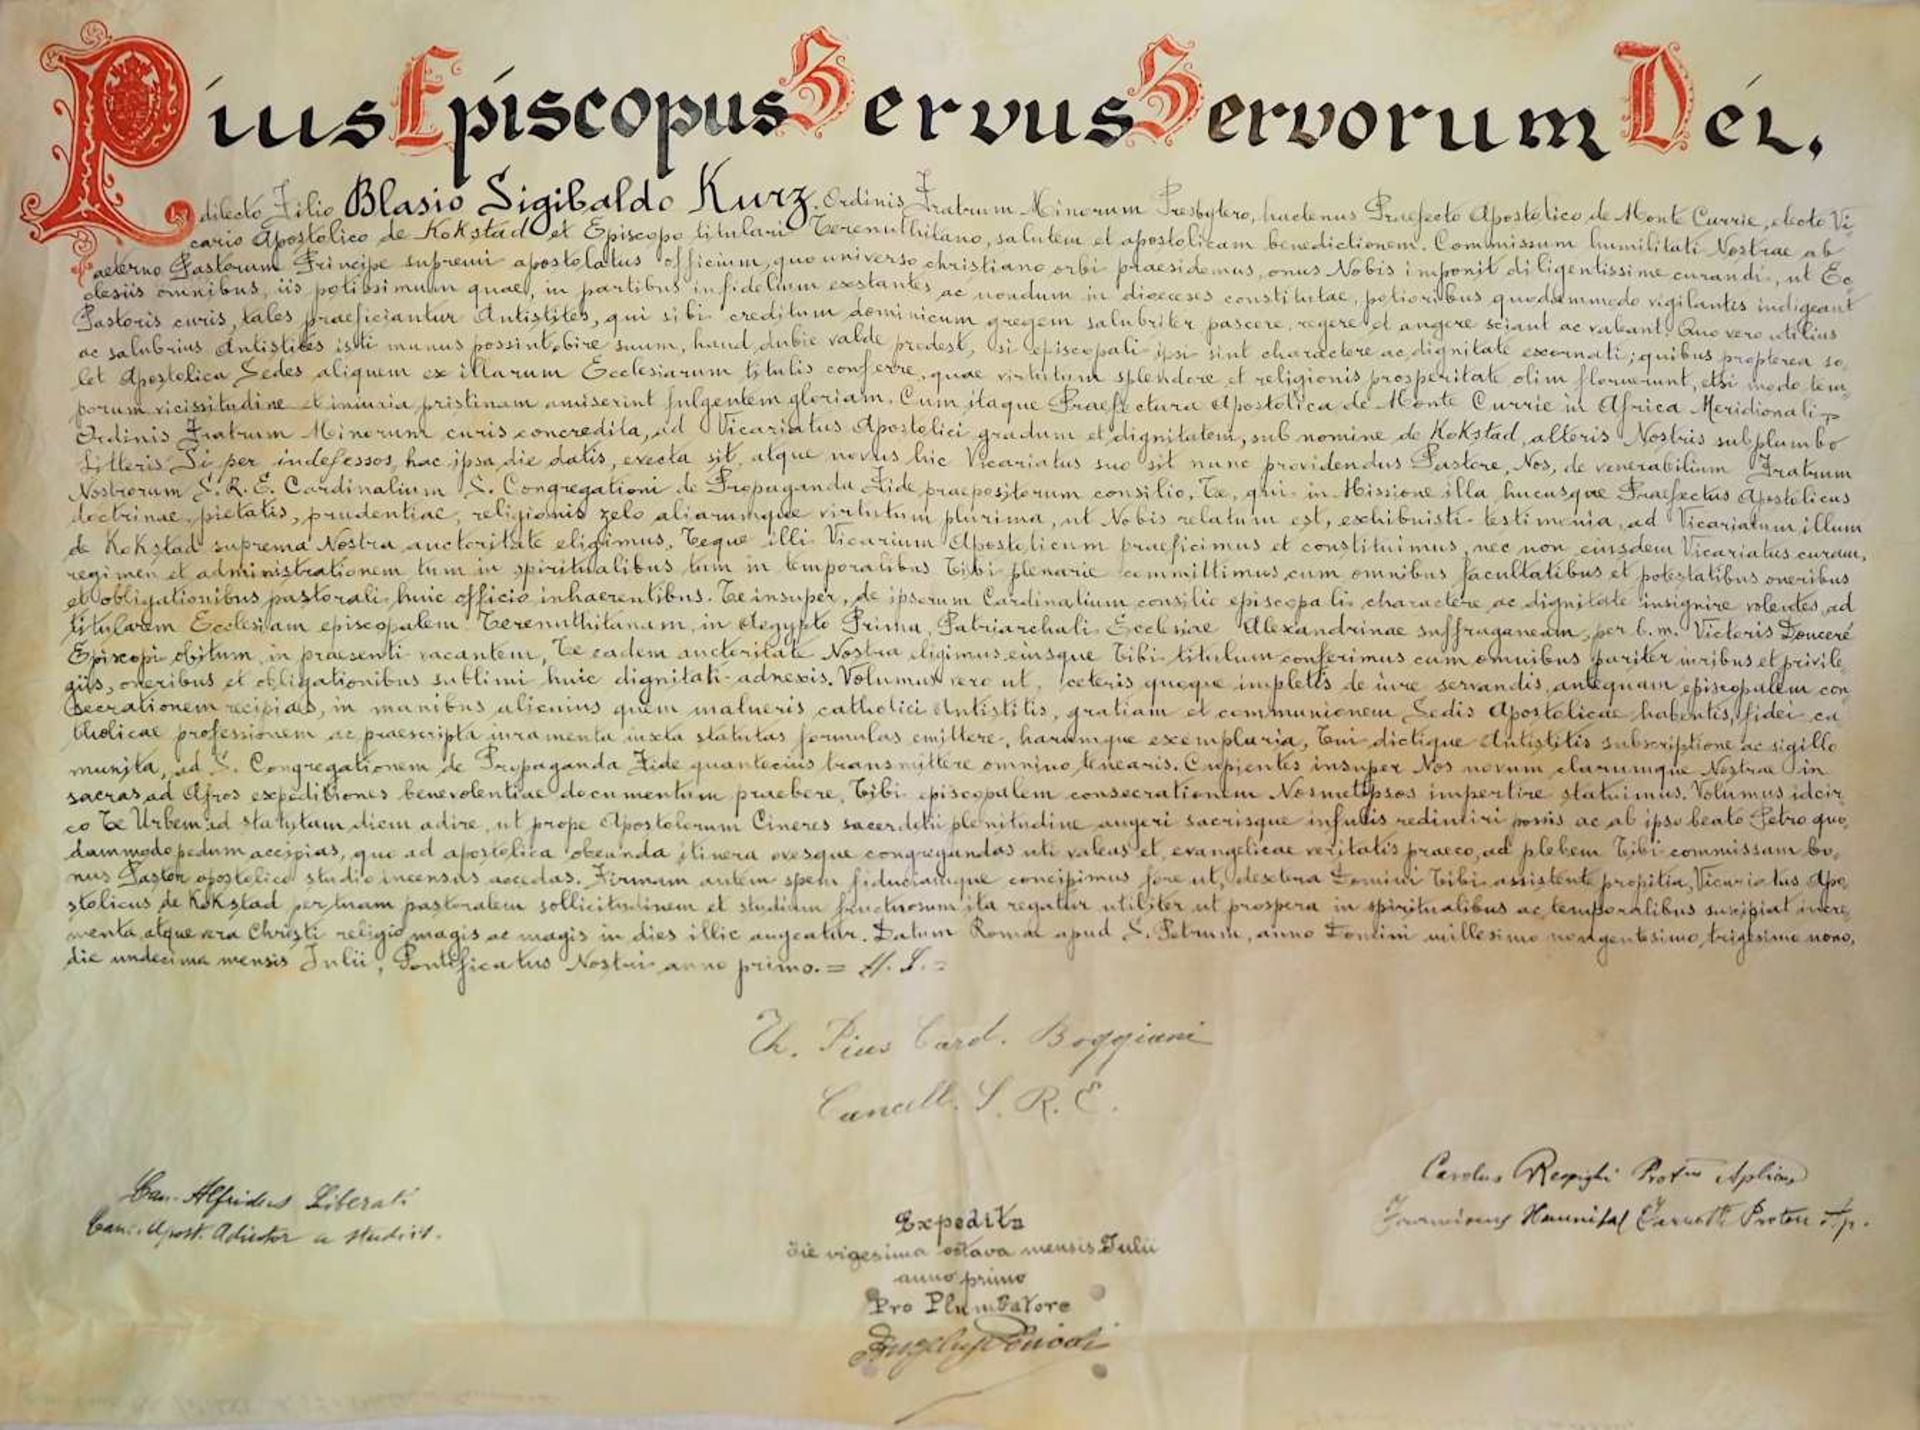 Pius Episcopus Servus Servorum Dei,
dilecto Filio Blasio Sigibaldo Kurz, Ordinis Fratrum Minorum Presbytero, hactenus Praefecto Apostolico de Monte Currie, electo Vi-
cario Apostolico de Kokstad et Episcopo titulari Terenuthitano, salutem et apostolicam benedictionem. Commissum humilitati Nostrae ab
aeterno Pastorum Principe supremi apostolatus officium, quo universo christiano orbi praesidemus, onus Nobis imponit diligentissime curandi, ut Ec-
clesiis omnibus, iis potissimum quae, in partibus infidelium exstantes ac nondum in dioeceses constitutae, potioribus quodammodo vigilantis indigeant
Pastoris curis, tales praeficiantur Antistites, qui sibi creditum dominicum gregem salubriter pascere, regere et augere sciant ac valeant. Quo vero utilius
ac salubrius Antistites isti munus possint obire suum, haud dubie valde prodest, si episcopali ipsi sint charactere ac dignitate exornati; quibus propterea so-
let Apostolica Sedes aliquem ex illarum Ecclesiarum titulis conferre, quae virtutum splendore et religionis prosperitate olim floruerunt, etsi modo tem-
porum vicissitudine et iniuria pristinam amiserint fulgentem gloriam. Cum itaque Praefectura Apostolica de Monte Currie in Africa Meridionali
Ordinis Fratrum Minorum curis concredita, ad Vicariatus Apostolici gradum et dignitatem, sub nomine de Kokstad, alteris Nostris sub plumbo
Litteris Si per indefessos, hac ipsa die datis, evecta sit, atque novus hic Vicariatus suo sit nunc providendus Pastore, Nos, de venerabilium Fratrum
Nostrorum S. R. E. Cardinalium S. Congregationi de Propaganda Fide praepositorum consilio, Te, qui in Missione illa hucusque Praefectus Apostolicus
doctrinae, pietatis, prudentiae, religionis zelo aliarumque virtutum plurima, ut Nobis relatum est, exhibuisti testimonia, ad Vicariatum illum
de Kokstad suprema Nostra auctoritate eligimus, Teque illi Vicarium Apostolicum praeficimus et constituimus, nec non eiusdem Vicariatus curam,
regimen et administrationem tum in spiritualibus tum in temporalibus Tibi plenarie committimus cum omnibus facultatibus et potestatibus oneribus
et obligationibus pastorali huic officio inhaerentibus. Te insuper, de ipsorum Cardinalium consilio episcopali charactere ac dignitate insignire volentes, ad
titularem Ecclesiam episcopalem Terenuthitanam, in Aegypto Prima, Patriarchali Ecclesiae Alexandrinae suffraganeam, per b. m. Victoris Douceré
Episcopi obitum in praesenti vacantem, Te eadem auctoritate Nostra eligimus eiusque Tibi titulum conferimus cum omnibus pariter iuribus et privile-
giis, oneribus et obligationibus sublimi huic dignitati adnexis. Volumus vero ut, ceteris quoque impletis de iure servandis, antequam episcopalem con-
secrationem recipias, in manibus alicuius quem malueris catholici Antistitis, gratiam et communionem Sedis Apostolicae habentis, fidei ca-
tholicae professionem ac praescripta iuramenta iuxta statutas formulas emittere, harumque exemplaria, Tui dictique Antistitis subscriptione ac sigillo
munita, ad S. Congregationem de Propaganda Fide quantocius transmittere omnino tenearis. Cupientes insuper Nos novum clarumque Nostrae in
sacras ad Afros expeditiones benevolentiae documentum praebere, Tibi episcopalem consecrationem Nosmetipsos impertire statuimus. Volumus idcir-
co Te Urbem ad statutam diem adire, ut prope Apostolorum Cineres sacerdotii plenitudine augeri sacrisque infulis redimiri possis ac ab ipso beato Petro quo-
dammodo pedum accipias, quo ad apostolica obeunda itinera ovesque congregandas uti valeas et, evangelicae veritatis praeco, ad plebem Tibi commissam bo-
nus Pastor apostolico studio incensus accedas. Firmam autem spem fiduciamque concipimus fore ut, dextera Domini Tibi assistente propitia, Vicariatus Apo-
stolicus de Kokstad per tuam pastoralem sollicitudinem et studium fructuosum ita regatur utiliter ut prospera in spiritualibus ac temporalibus suscipiat incre-
menta, atque vera Christi religio magis ac magis in dies illic augeatur. Datum Romae apud S. Petrum, anno Domini millesimo nongentesimo trigesimo nono,
die undecima mensis Julii, Pontificatus Nostri anno primo.
Th. Pius Card. Boggiani
Cancell. S. R. E.
Can. Alfridus Liberati
Canc. Apost. Adiutor a studiis.
Carolus Respighi Proton Aplicus
Proton Ap.
Expedita
die vigesima octava mensis Julii
anno primo
Pro Plumbatore